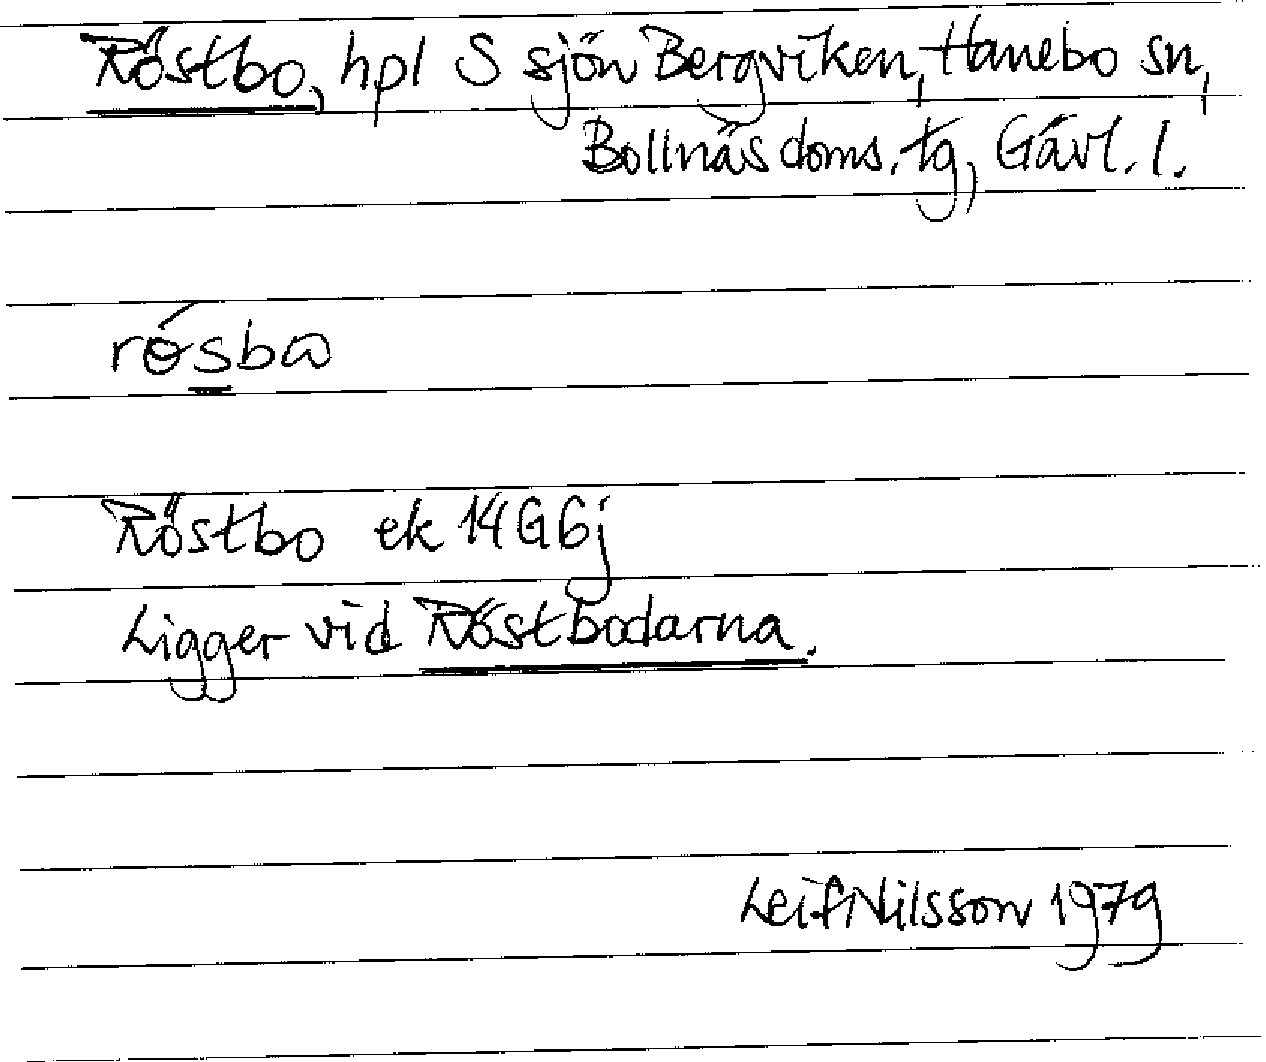 Röstbo, hpl S sjön Bergviken, Hanebo sn,
Bollnäs doms. tg, Gävl. l.
rɵ́sbɷ
Röstbo ek 14G6j
Ligger vid Röstbodarna.
Leif Nilsson 1979